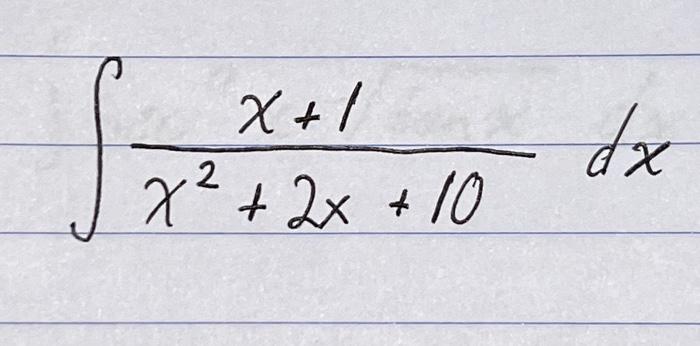 ∫ (x + 1)/(x² + 2x + 10) dx